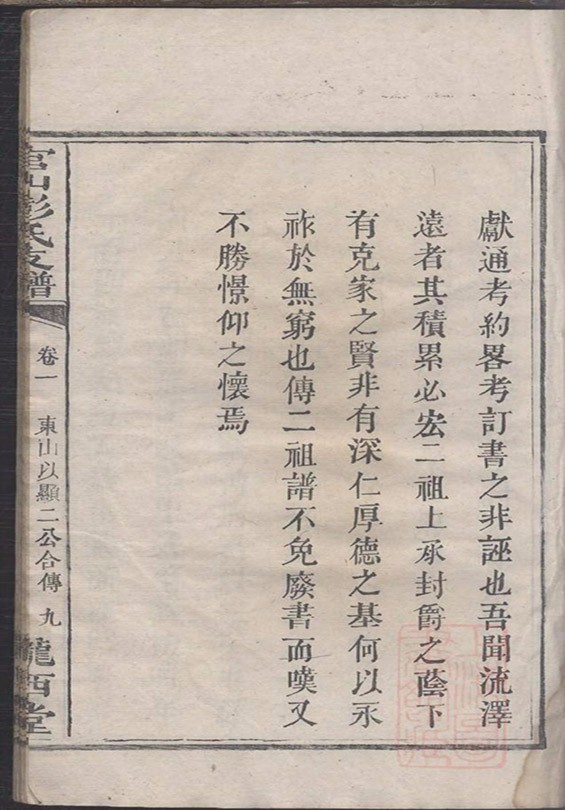 獻通考約畧考訂書之非誣也吾聞流澤
遠者其積累必宏二祖上承封爵之蔭下
有克家之賢非有深仁厚德之基何以永
祚於無窮也傳二祖譜不免廢書而嘆又
不勝憬仰之懷焉
官山彭氏支譜
卷一
東山以顯二公合傳
九
隴西堂